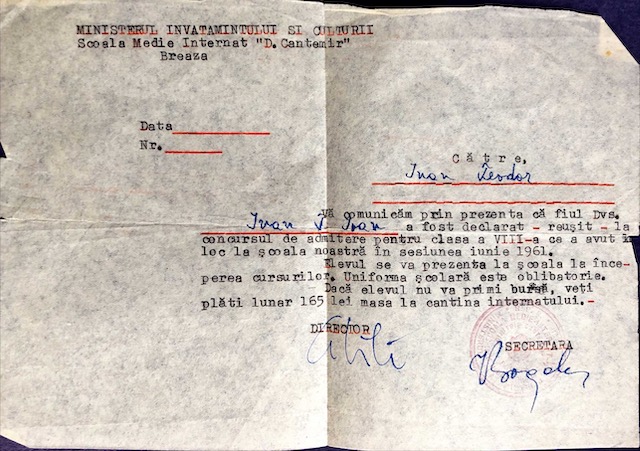 MINISTERUL INVATAMINTULUI SI CULTURII
Școala Medie Internat "D. Cantemir"
Breaza
Data
Nr.
Către,
Ivan Teodor
Vă comunicăm prin prezenta că fiul Dvs.
Ivan T. Ioan a fost declarat - reușit - la
concursul de admitere pentru clasa a VIII-a ce a avut
loc la școala noastră în sesiunea iunie 1961.
Elevul se va prezenta la școala la înce-
perea cursurilor. Uniforma școlară este oblibatorie.
Dacă elevul nu va primi bursă, veți
plăti lunar 165 lei masa la cantina internatului.-
DIRECTOR
SECRETARA
Bogdan